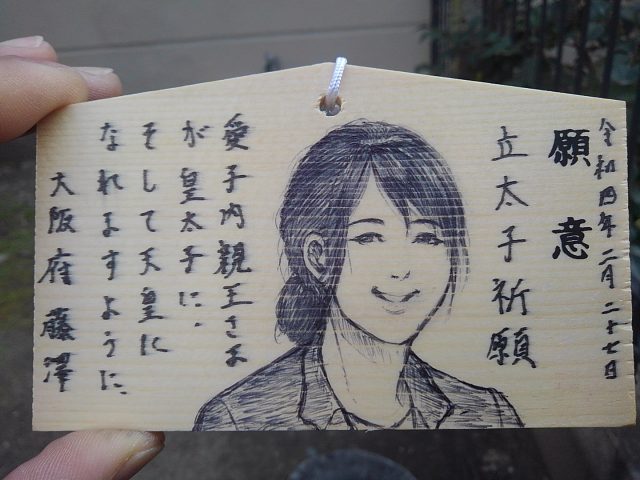 令和四年二月二十七日
願意
立太子祈願
愛子内親王さま
が皇太子に、
そして天皇に
なれますように、
大阪府 藤澤